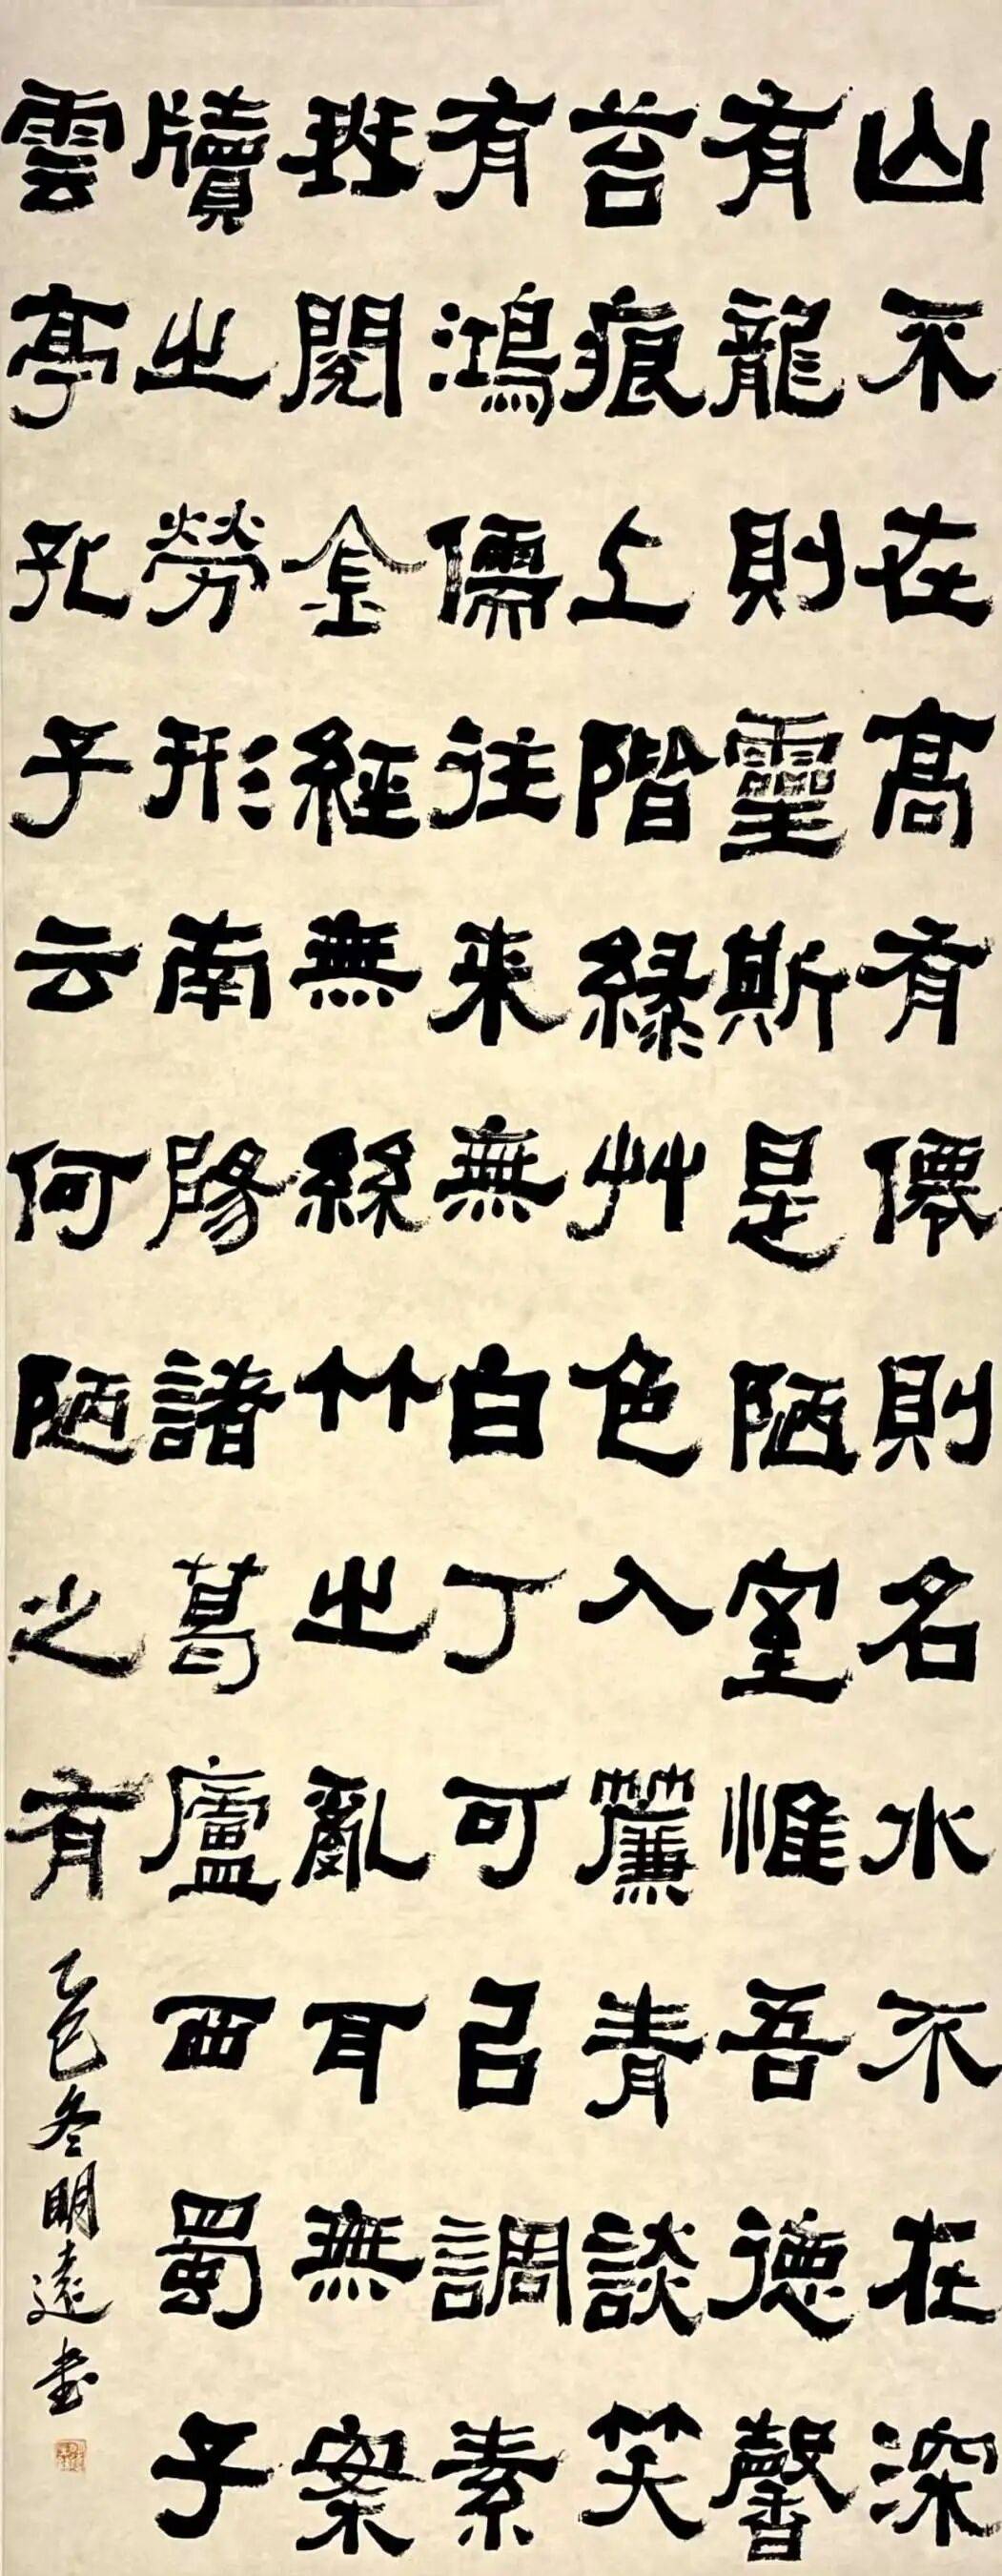 山不在高有僊則名水不在深
有龍則靈斯是陋室惟吾德馨
苔痕上階緑艸色入簾青談笑
有鴻儒往来無白丁可㠯調素
琹閱金經無絲竹之亂耳無案
牘之勞形南陽諸葛廬西蜀子
雲亭孔子云何陋之有
乙巳冬明遠書